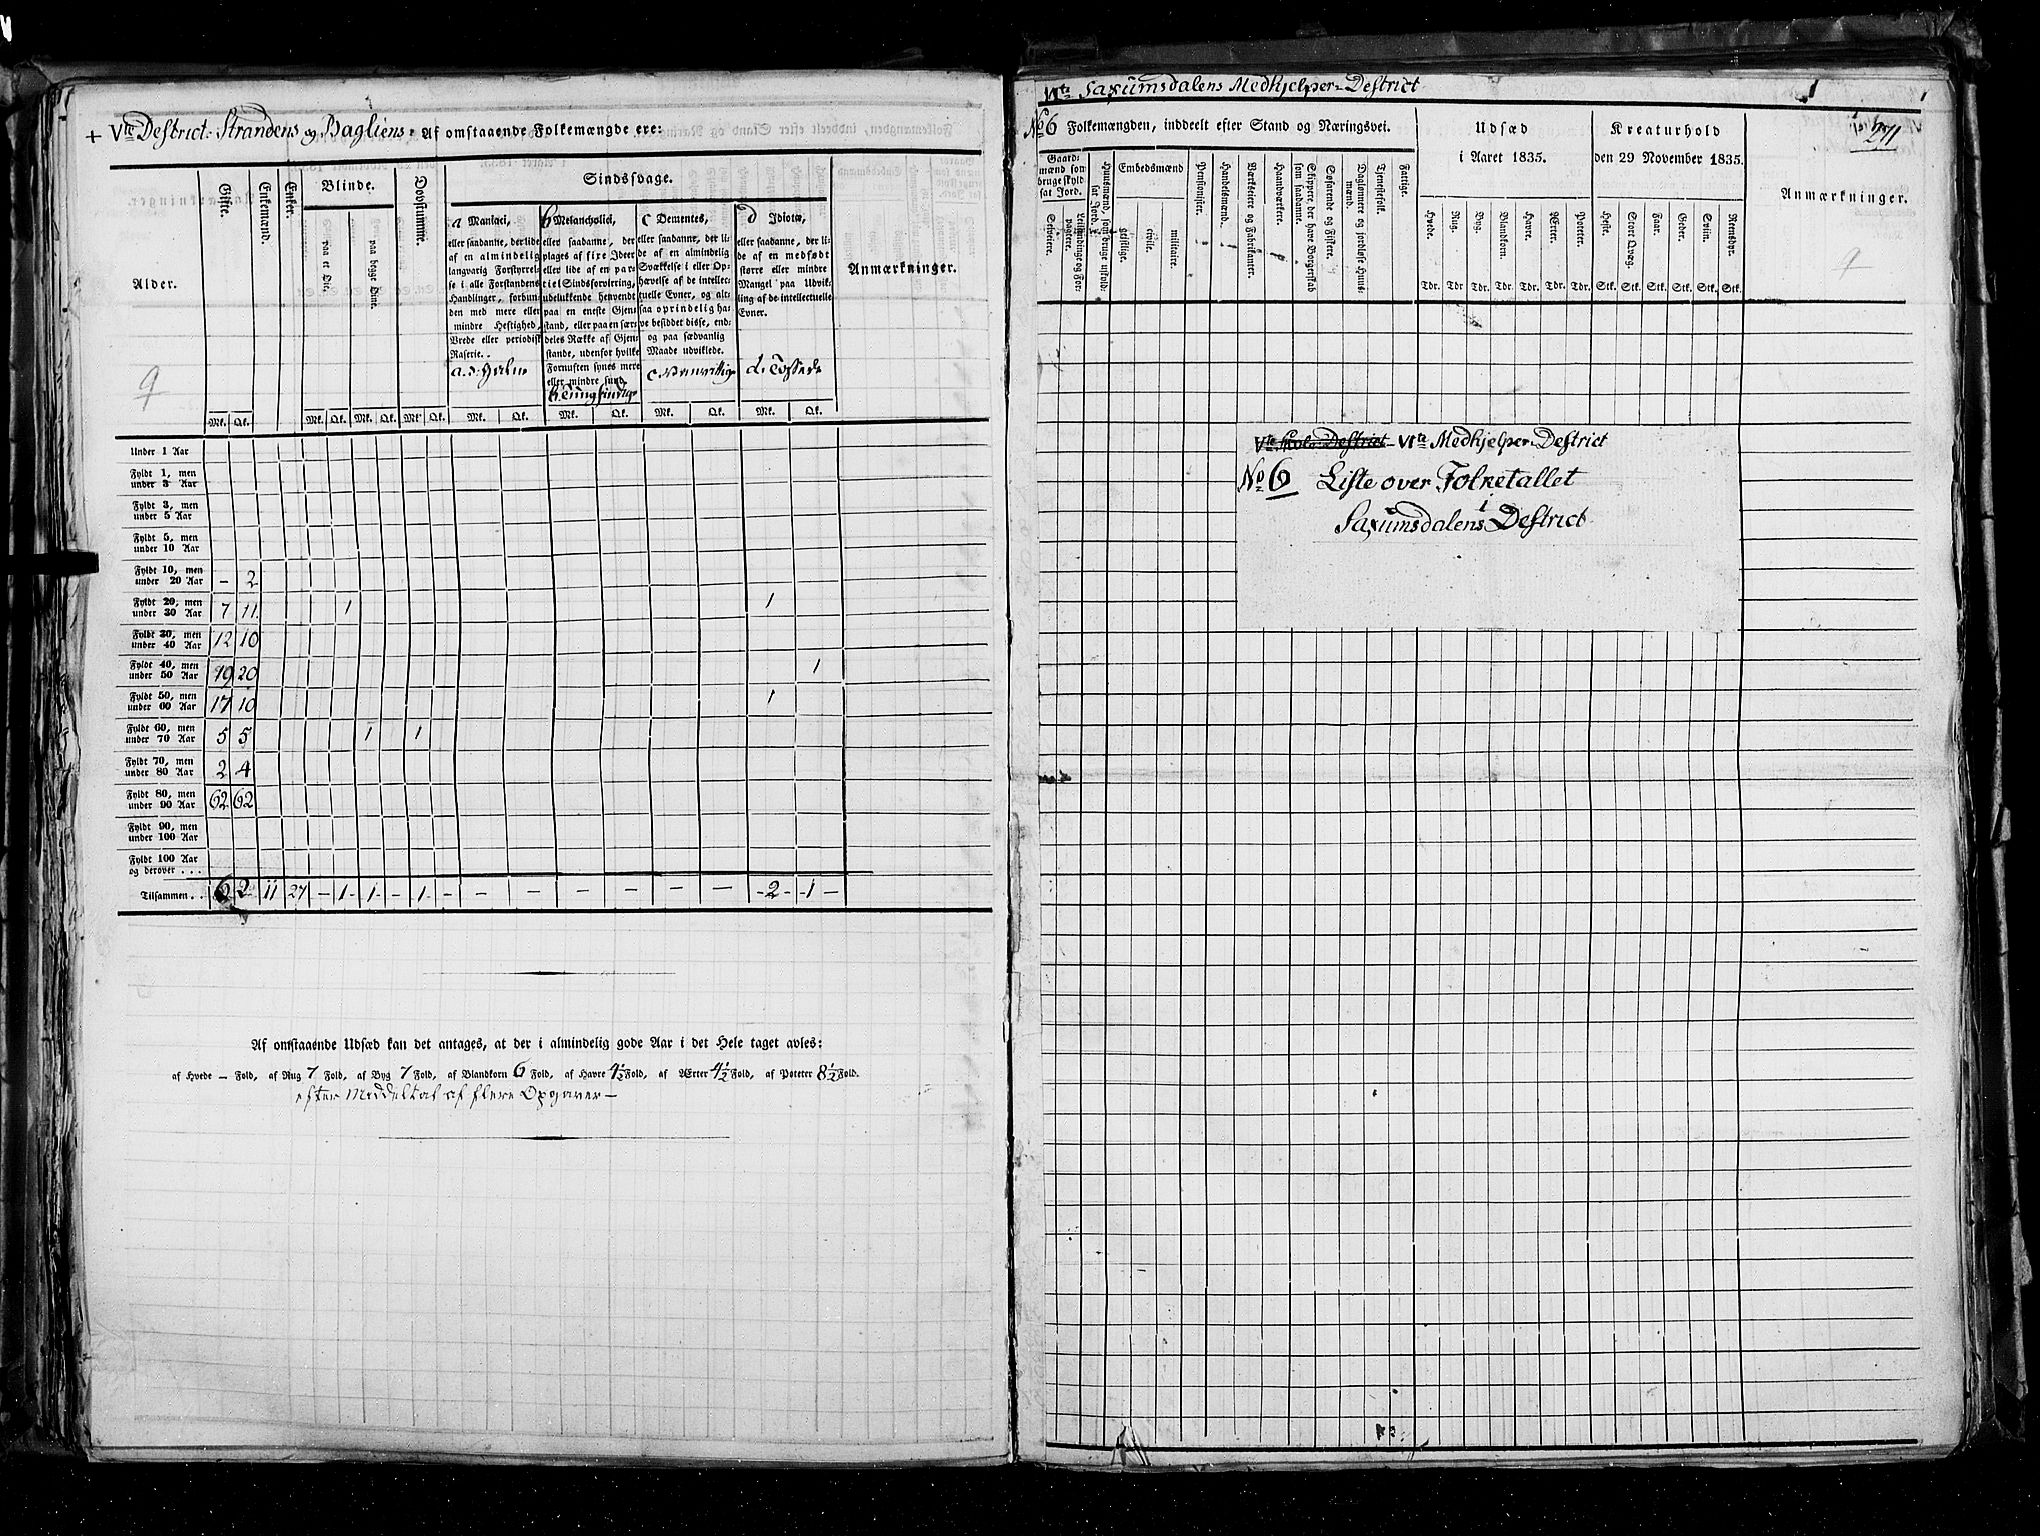 + Vte District. Strandens og Bagliens. Af omstaaende Folkemængde ere:
Alder.
Gifte.
Enkemænd.
Enker.
Blinde.
paa et Øie.
paa begge Øine.
Døvstumme.
Sindssvage.
a Maniaci,
eller saadanne, der lide
af en almindelig
langvarig Forstyrrel-
se i alle Forstandens
Handlinger, forbun-
den med mere eller
mindre Heftighed,
Vrede eller periodisk
Raserie..
b Melancholici,
eller saadanne, der
plages af fixe Ideer
eller lide af en par-
tiel Sindsforvirring,
udelukkende henvendt
paa en eneste Gjen-
stand, eller paa en sær-
deles Række af Gjen-
stande, udenfor hvilke
Fornuften synes mere
eller mindre sund.
c Dementes,
eller saadanne, der li-
de af en almindelig
Svækkelse i eller Op-
hævelse af de intellec-
tuelle Evner, og alt-
saa oprindelig ha-
ve besiddet disse, end-
og paa sædvanlig
Maade udviklede.
d Idioter,
eller saadanne, der li-
de af en medfødt
større eller mindre
Mangel paa Udvik-
ling af de intellectuelle
Evner.
d. Tossede
Anmærkninger.
9
Mk. Qk. Mk. Qk. Mk. Qk. Mk. Qk. Mk. Qk. Mk. Qk. Mk. Qk. Mk. Qk.
Under 1 Aar
Fyldt 1, men
under 3 Aar
Fyldt 3, men
under 5 Aar
Fyldt 5, men
under 10 Aar
Fyldt 10, men
under 20 Aar – 2
Fyldt 20, men
under 30 Aar 7 11. 1 1
Fyldt 30, men
under 40 Aar 12 10
Fyldt 40, men
under 50 Aar 19 20 1
Fyldt 50, men
under 60 Aar 17 10 1
Fyldt 60, men
under 70 Aar 5 5 1 1
Fyldt 70, men
under 80 Aar 2 4
Fyldt 80, men
under 90 Aar 62 62
Fyldt 90, men
under 100 Aar
Fyldt 100 Aar
og derover . . .
Tilsammen . . 62 11 27 – 1 – 1 – 1 – – – – – – – – 2 – 1 –
Af omstaaende Udsæd kan det antages, at der i almindelig gode Aar i det Hele taget avles:
af Hvede – Fold, af Rug 7 Fold, af Byg 7 Fold, af Blandkorn 6 Fold, af Havre 4½ Fold, af Ærter 4½ Fold, af Poteter 8½ Fold.
efter Middeltal af flere Opgaver –
VIte Saxumsdalens Medhjelper-Destrict
1
No 6 Folkemængden, inddeelt efter Stand og Næringsvei.
Gaard-
mænd som
bruge skyld-
sat Jord.
Selveiere.
Leilændinge og For-
pagtere.
Huusmænd, som bruge uskyld-
sat Jord.
Embedsmænd
geistlige.
civile.
militaire.
Pensionister.
Handelsmænd.
Værkseiere og Fabrikanter.
Haandværkere.
Skippere der have Borgerskab
som saadanne.
Søfarende og Fiskere.
Daglønnere og jordløse Huus-
mænd.
Tjenestefolk.
Fattige.
Udsæd
i Aaret 1835.
Hvede. Rug. Byg. Blandkorn. Havre. Ærter. Poteter.
Tdr. Tdr. Tdr. Tdr. Tdr. Tdr. Tdr.
Kreaturhold
den 29 November 1835.
Heste. Stort Qvæg. Faar. Geder. Sviin. Reensdyr.
Stk. Stk. Stk. Stk. Stk. Stk.
271
Anmærkninger.
9
Vte Skole-Destrict – VIte Medhjelper-Destrict
No 6 Liste over Folketallet
i
Saxumsdalens Destrict